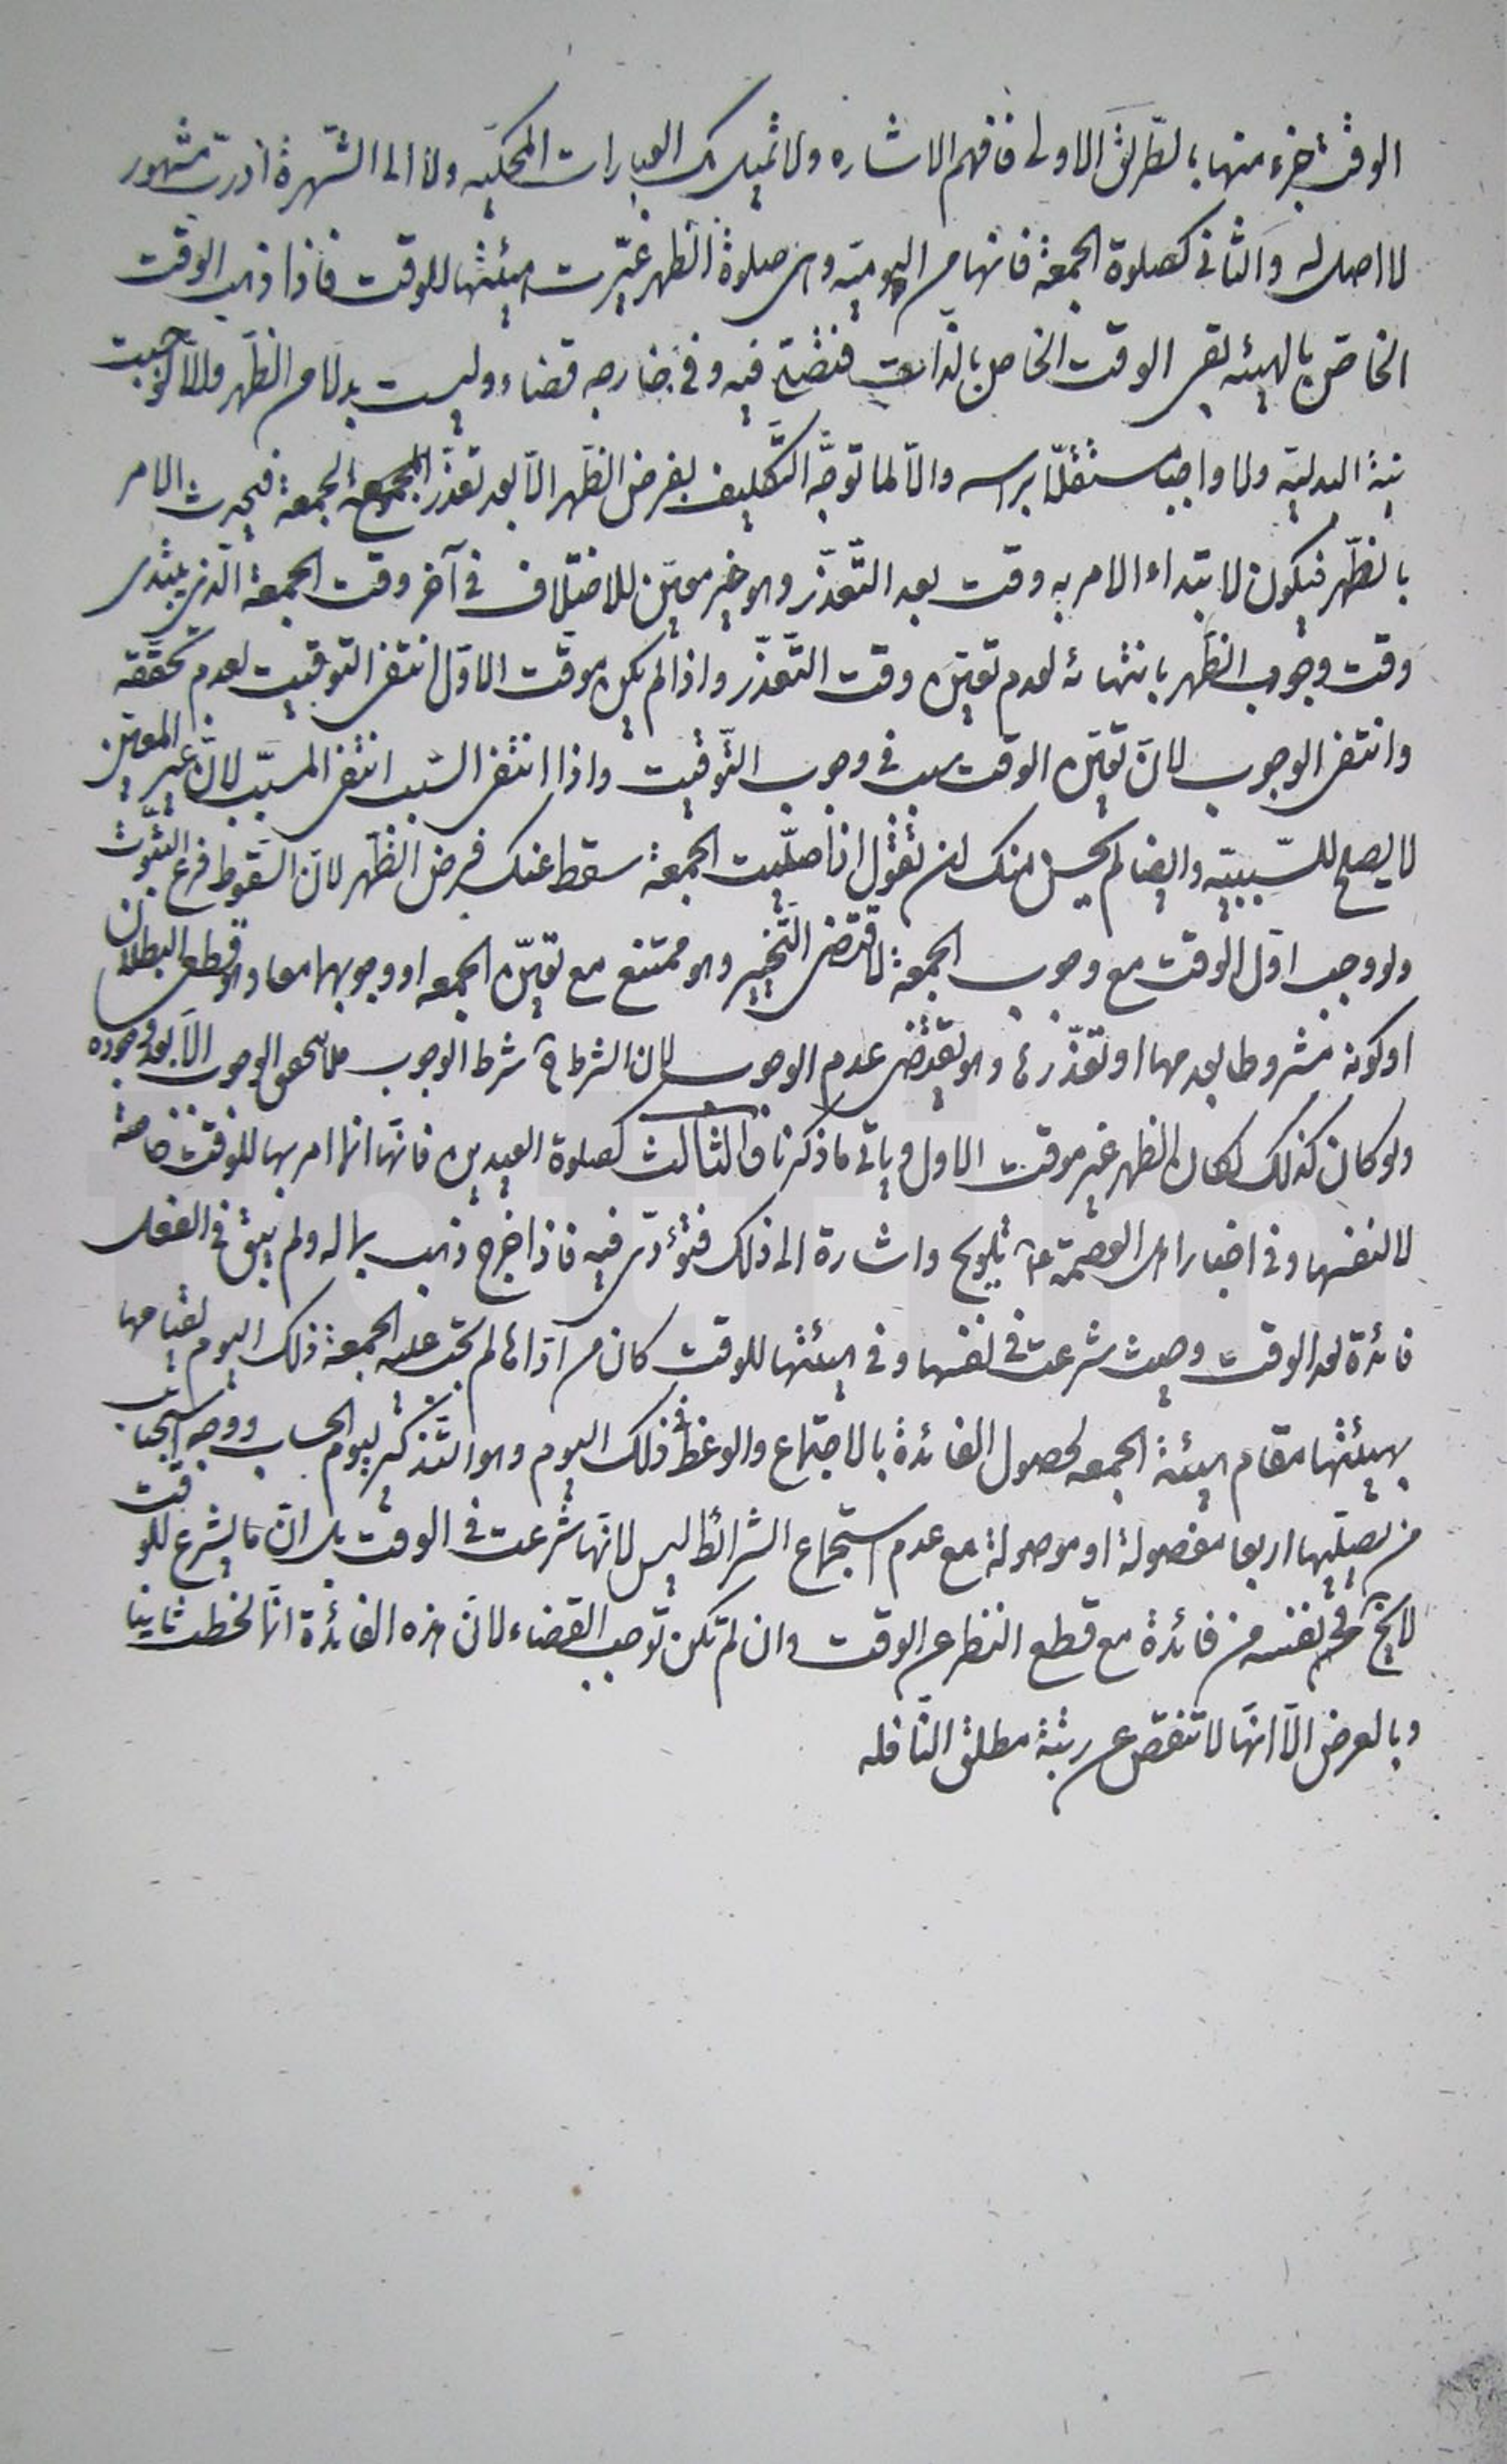 الوقت جزء منها بالطريق الاولى فافهم الاشاره ولا تميل بك العبارات المحكيّه ولا الى الشّهرة اذ ربّ مشهور
لا اصل له والثّانى كصلوة الجمعة فانها من اليوميّه وهى صلوة الظهر غيّرت هيئتها للوقت فاذا ذهب الوقت
الخاصّ بالهيئه بقى الوقت الخاص بالذات فتصحّ فيه وفى خارجه قضاء وليست بدلا من الظّهر والّا لوجبت
نيّة البدليّه ولا واجبا مستقلّا براسه والّا لما توجّه التّكليف بفرض الظّهر الّا بعد تعذّر الجمعة فيحدث الامر
بالظّهر فيكون لابتداء الامر به وقت بعد التّعذّر وهو غير معيّن للاختلاف فى آخر وقت الجمعة الّذى يبتدى
وقت وجوب الظّهر بانتهائه لعدم تعيّن وقت التّعذّر واذا لم يكن موقّت الاوّل انتفى التوقيت لعدم تحقّقه
وانتفى الوجوب لانّ تعيّن الوقت سبب فى وجوب التّوقيت واذا انتفى السّبب انتفى المسبّب لانّ غير المعيّن
لا يصلح للسّببيّه وايضا لم يحسن منك ان تقول اذا صلّيت الجمعة سقط عنك فرض الظّهر لانّ السّقوط فرع الثّبوت
ولو وجب اوّل الوقت مع وجوب الجمعة لاقتضى التّخيير وهو ممتنع مع تعيّن الجمعه او وجوبهما معا وهو قطعى البطلان
او كونه مشروطا بعدمها او تعذّرها وهو يقتضى عدم الوجوب لان الشرط ح شرط الوجوب فلا يتحقق الوجوب الّا بعد وجوده
ولو كان كذلك لكان الظهر غير موقت الاول وياتى ما ذكرنا والثالث كصلوة العيدين فانّها انما امر بها للوقت خاصّة
لا لنفسها وفى اخبار اهل العصمة ع تلويح واشارة الى ذلك فتؤدّى فيه فاذا خرج ذهب بما له ولم يبق فى الفعل
فائدة لغد الوقت وحيث شرعت فى نفسها وفى هيئتها للوقت كان من ادّاها لم تجب عليه الجمعة ذلك اليوم لقيامها
بهيئتها مقام هيئة الجمعه لحصول الفائدة بالاجتماع والوعظ فى ذلك اليوم وهو التّذكير ليوم الحساب ووجه استحباب
من يصلّيها اربعا مفصولة او موصولة مع عدم استجماع الشرائط ليس لانّها شرعت فى الوقت بل انّ ما يشرع للوقت
لا يخ فى نفسه من فائدة مع قطع النظر عن الوقت وان لم تكن توجب القضاء لانّ هذه الفائدة انّما لحظت ثانيا
وبالعرض الّا انّها لا تنقص عن رتبة مطلق النّافله